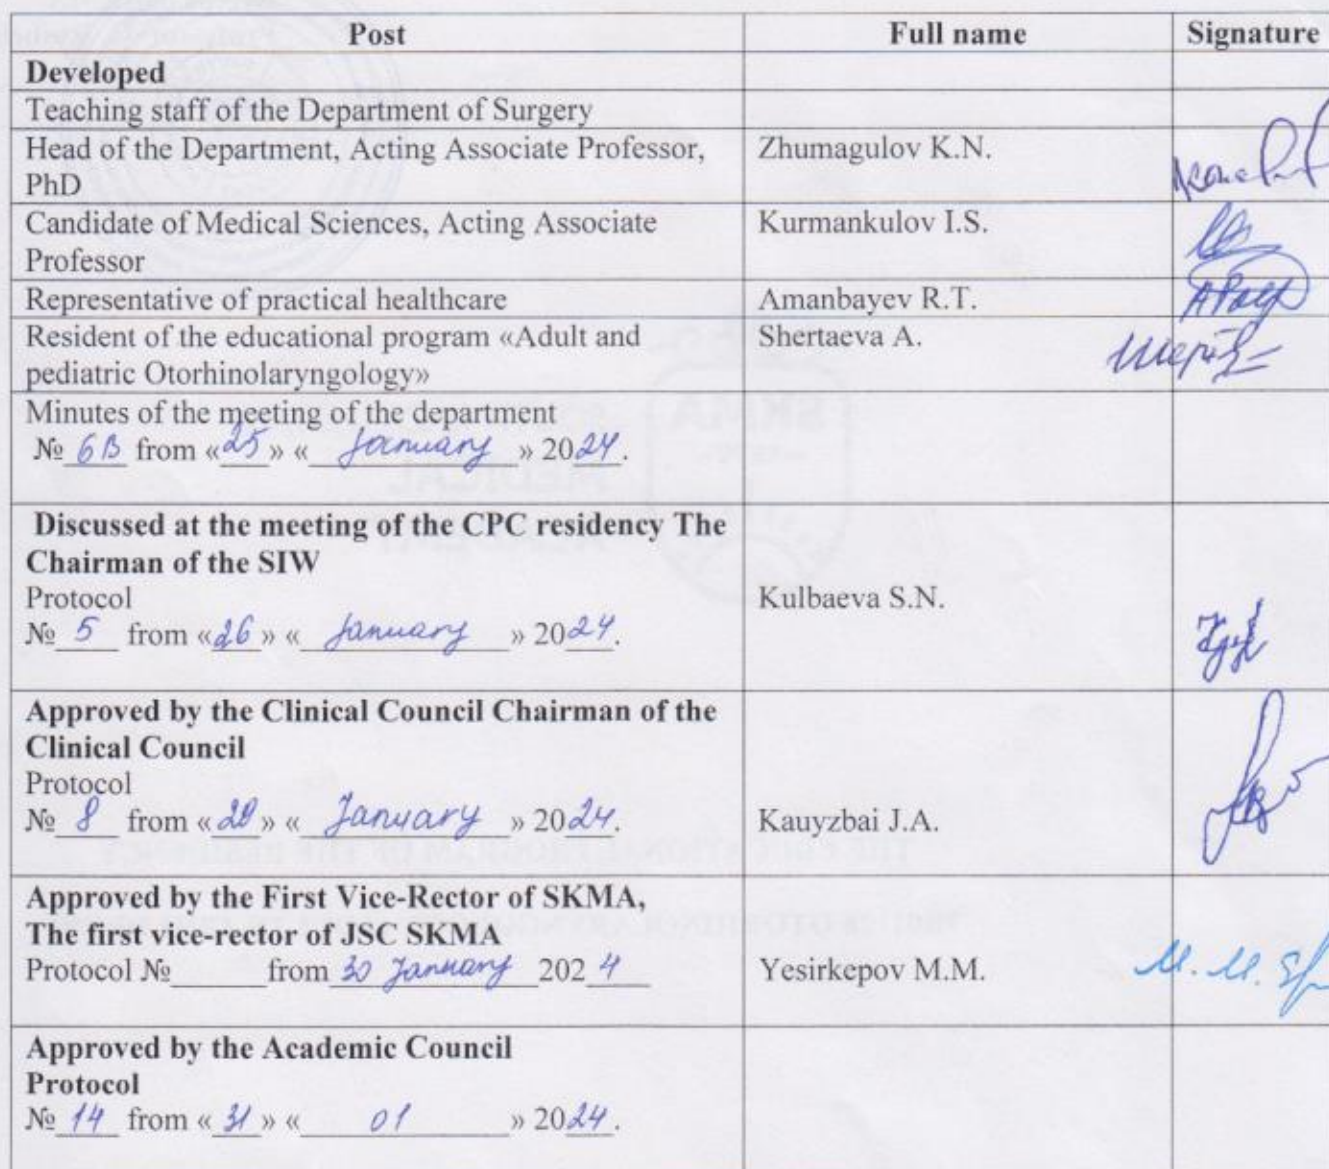 Post Full name Signature
Developed
Teaching staff of the Department of Surgery
Head of the Department, Acting Associate Professor, Zhumagulov K.N.
PhD
Candidate of Medical Sciences, Acting Associate Kurmankulov I.S.
Professor
Representative of practical healthcare Amanbayev R.T.
Resident of the educational program «Adult and Shertaeva A.
pediatric Otorhinolaryngology»
Minutes of the meeting of the department
№ 6B from «25» « January » 2024.
Discussed at the meeting of the CPC residency The
Chairman of the SIW
Protocol Kulbaeva S.N.
№ 5 from «26» « January » 2024.
Approved by the Clinical Council Chairman of the
Clinical Council
Protocol
№ 8 from « » « January » 2024. Kauyzbai J.A.
Approved by the First Vice-Rector of SKMA,
The first vice-rector of JSC SKMA
Protocol №______from 30 January 2024 Yesirkepov M.M.
Approved by the Academic Council
Protocol
№ 14 from « 31 » « 01 » 2024.